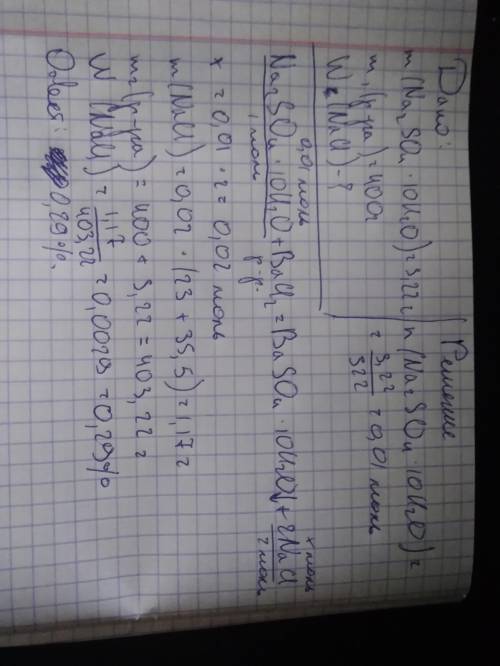 Дано:
m(Na2SO4·10H2O)=3,22г
m1(р-ра)=400г
W2(NaCl)-?
Решение
n(Na2SO4·10H2O)=
=3,22/322=0,01 моль
0,01 моль x моль
Na2SO4·10H2O+BaCl2=BaSO4·10H2O↓+2NaCl
1 моль р-р. 2 моль
x=0,01·2=0,02 моль
m(NaCl)=0,02·(23+35,5)=1,17г
m2(р-ра)=400+3,22=403,22г
W(NaCl)=1,17/403,22=0,0029=0,29%
Ответ: 0,29%.